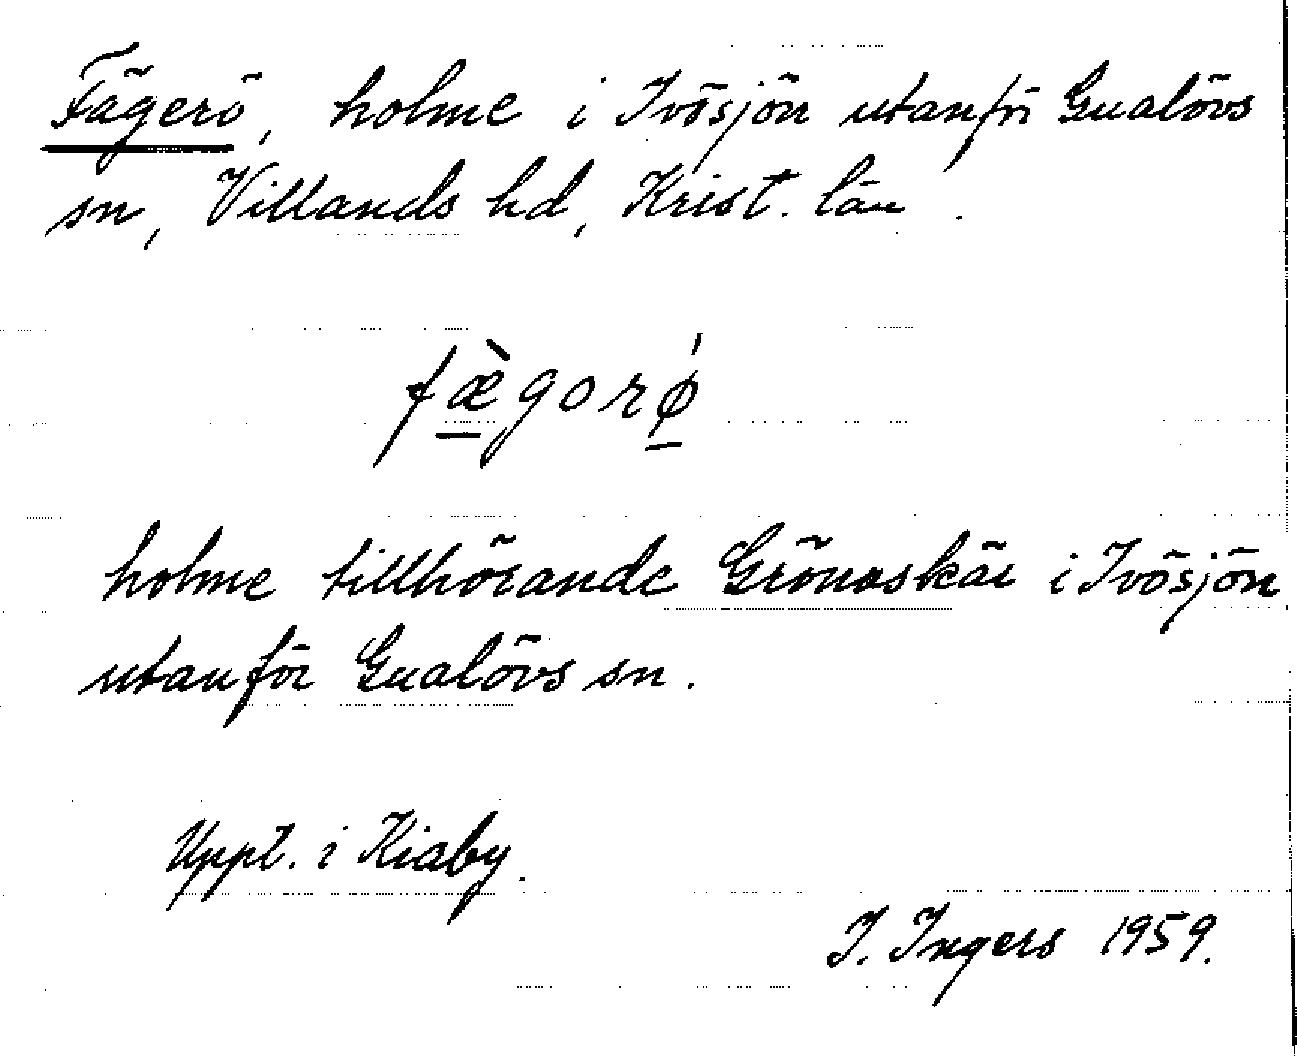 Fägerö, holme i Ivösjön utanför Gualövs
sn, Villands hd, Krist. län.
fæ̀gorǿ
holme tillhörande Grönaskär i Ivösjön
utanför Gualövs sn.
Uppt. i Kiaby.
I. Ingers 1959.